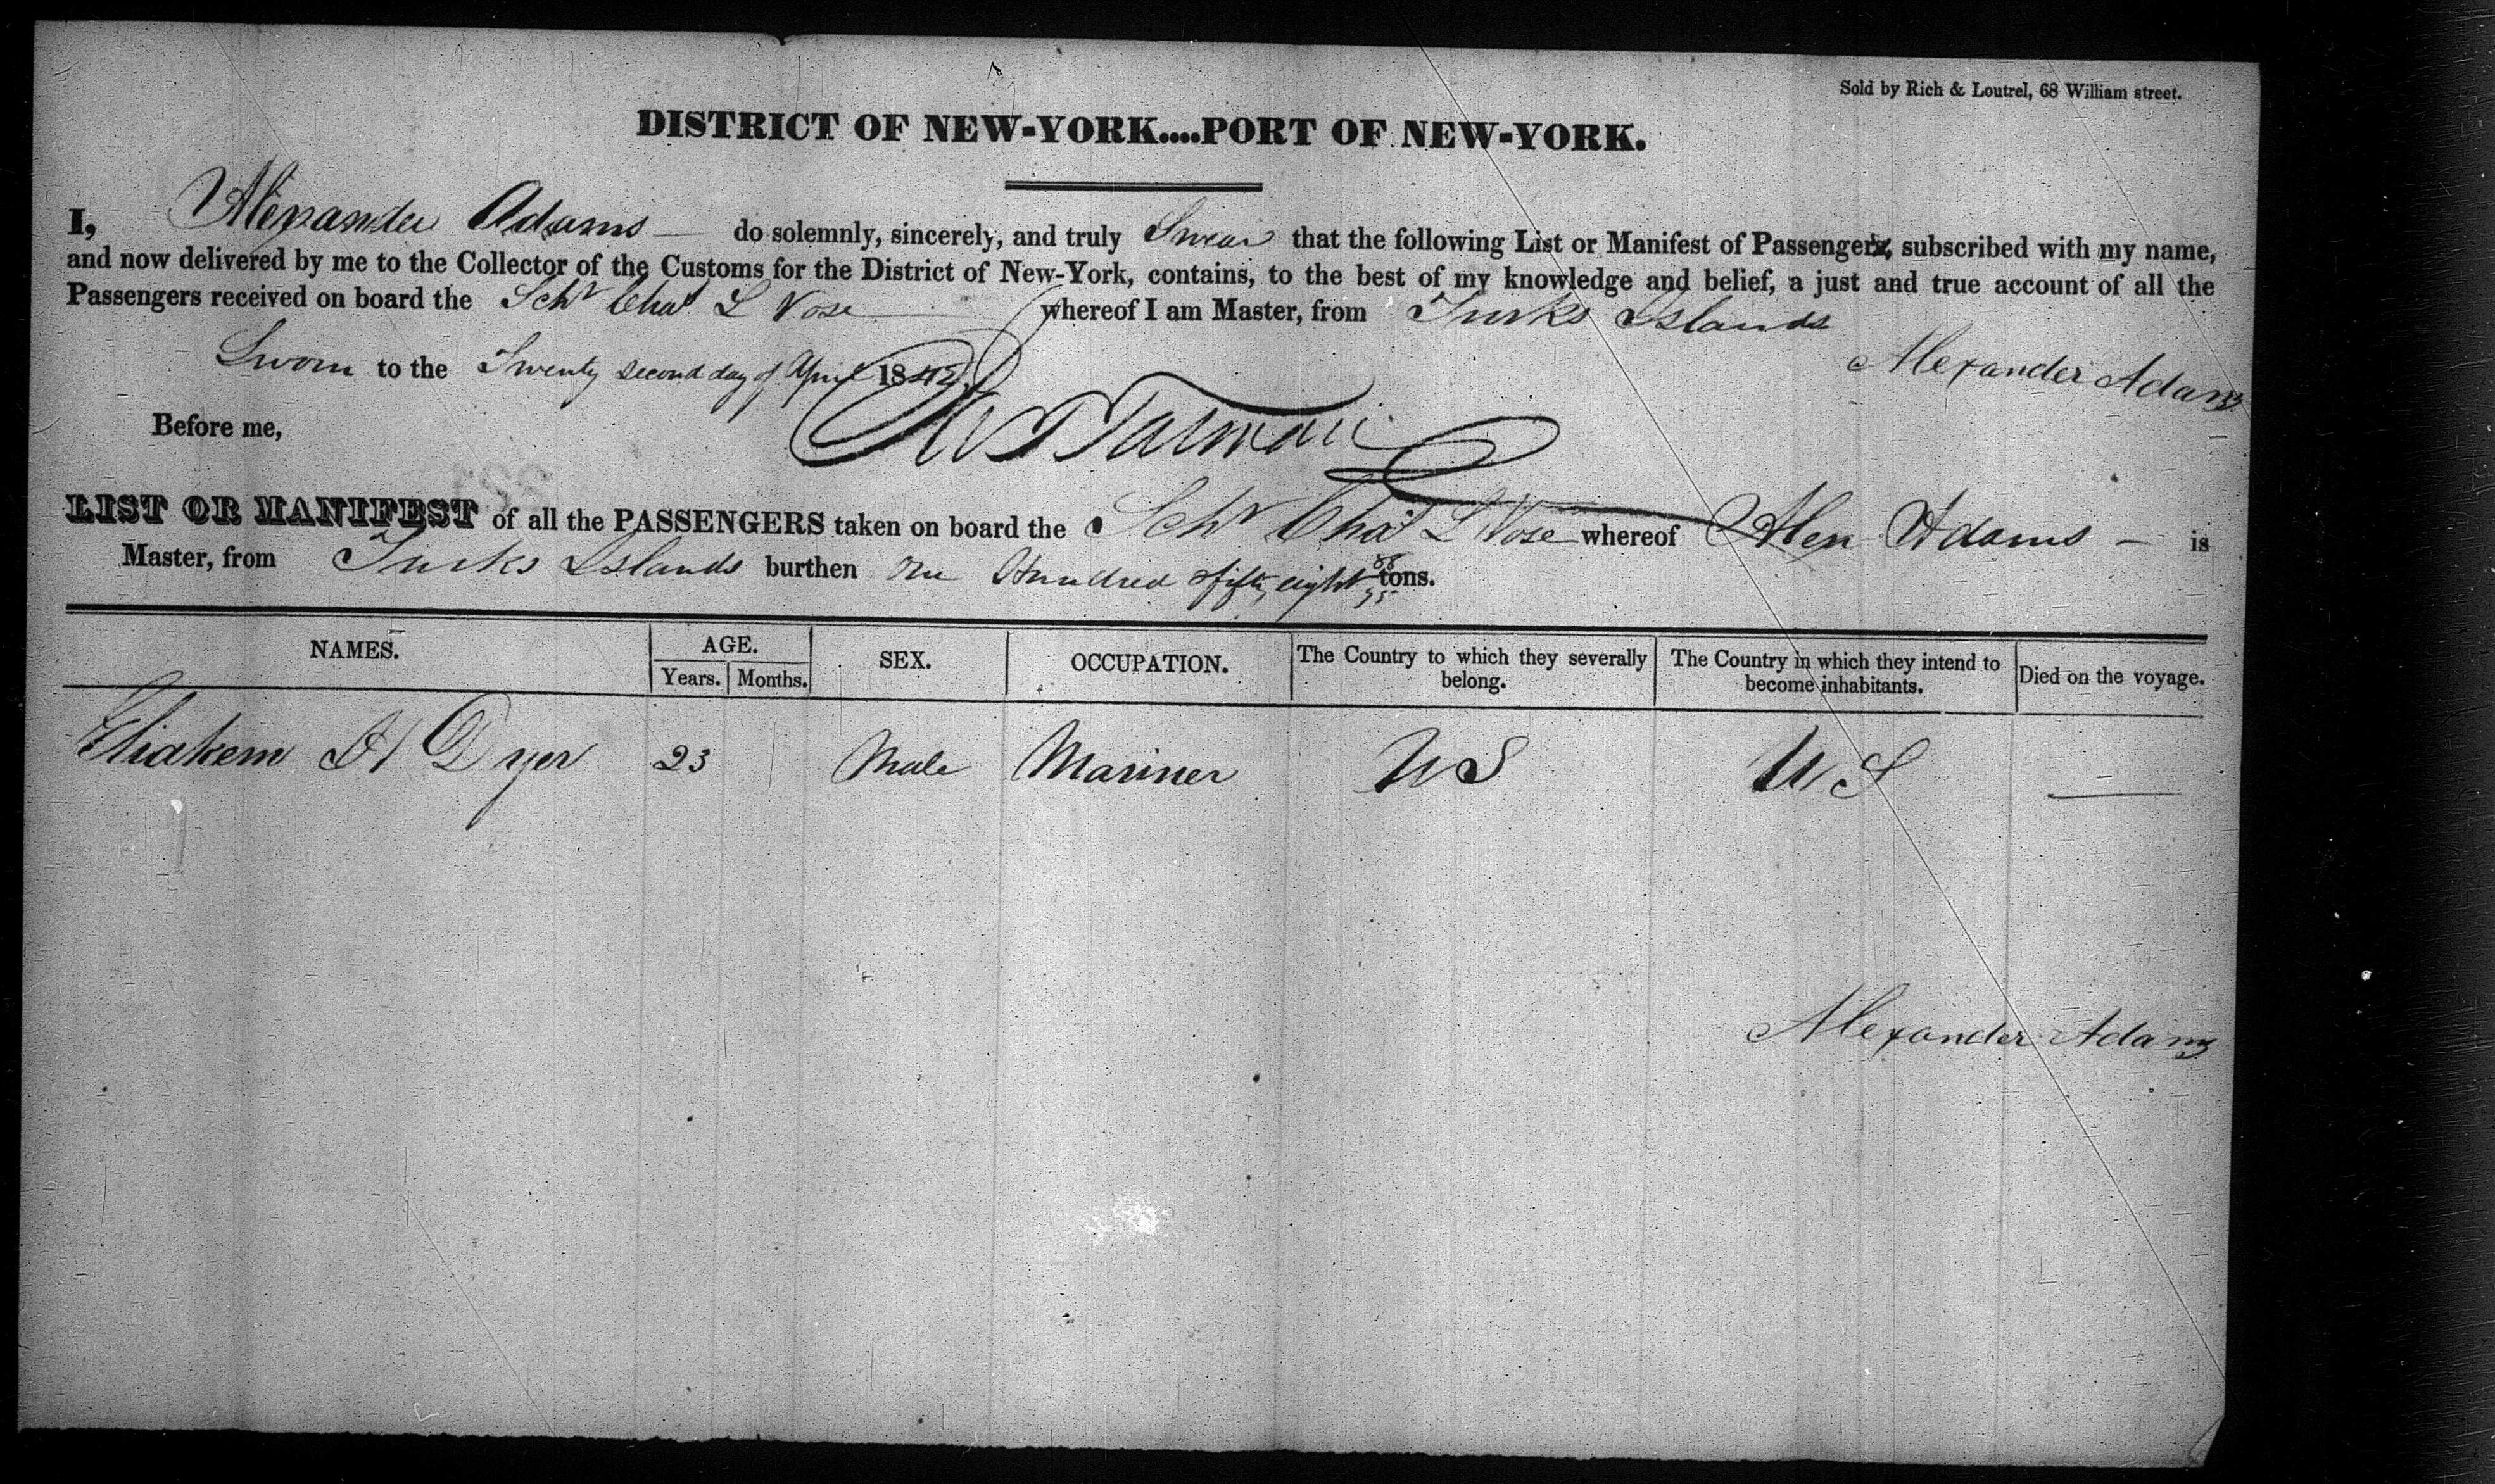 Sold by Rich & Loutrel, 68 William street.
DISTRICT OF NEW-YORK....PORT OF NEW-YORK.
I, Alexander Adams — do solemnly, sincerely, and truly Swear that the following List or Manifest of Passengers, subscribed with my name,
and now delivered by me to the Collector of the Customs for the District of New-York, contains, to the best of my knowledge and belief, a just and true account of all the
Passengers received on board the Schr Chas L Vose whereof I am Master, from Turks Islands
Sworn to the Twenty second day of April 1842 Alexander Adams
Before me,
LIST OR MANIFEST of all the PASSENGERS taken on board the Schr Chas L Vose whereof Alex Adams — is
Master, from Turks Islands burthen One Hundred fifty eight 88/95 tons.
NAMES. AGE. Years. Months. SEX. OCCUPATION. The Country to which they severally belong. The Country in which they intend to become inhabitants. Died on the voyage.
Eliakem H Dyer 23 Male Mariner US US —
Alexander Adams